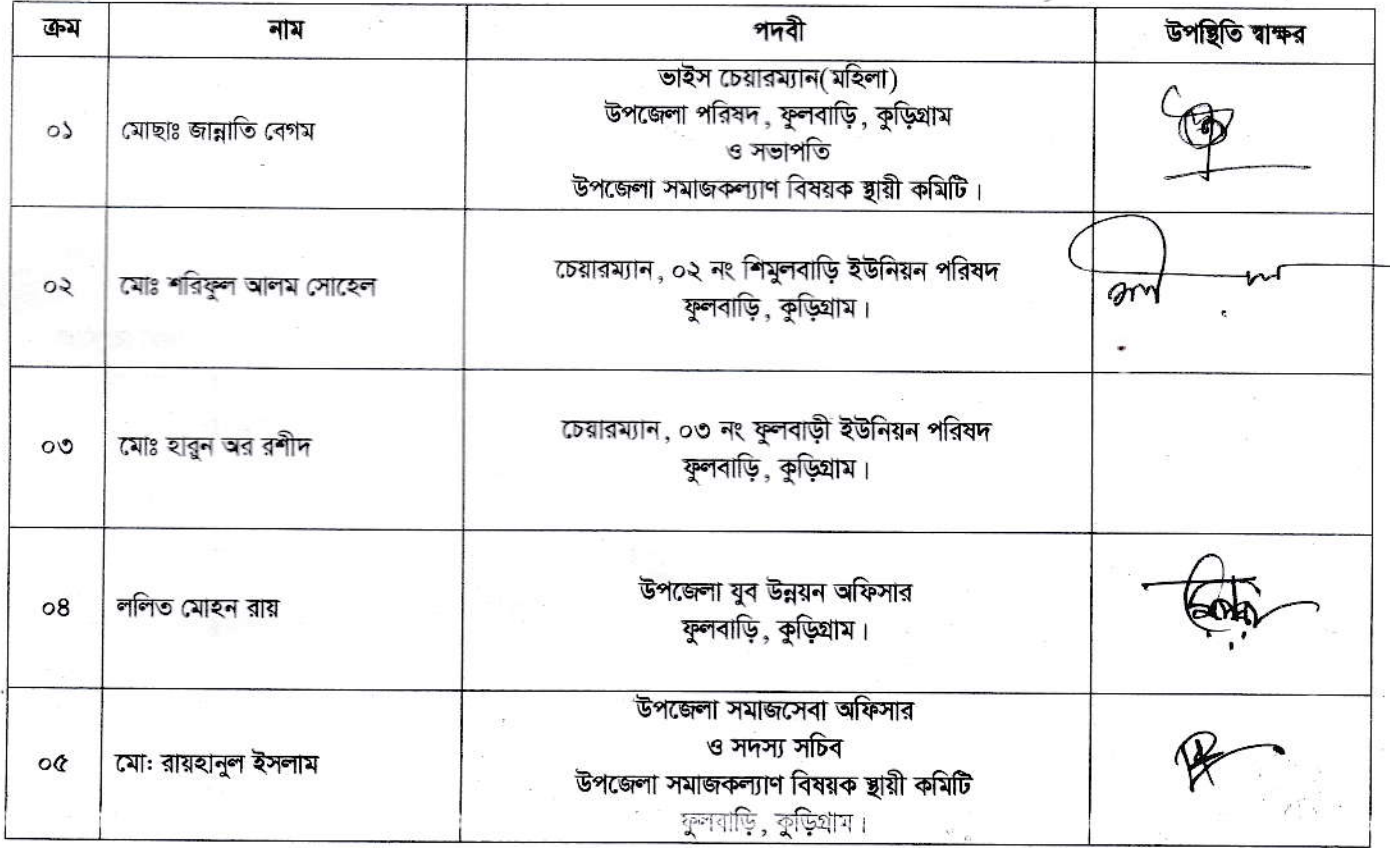 ক্রম নাম পদবী উপস্থিতি স্বাক্ষর
ভাইস চেয়ারম্যান(মহিলা)
উপজেলা পরিষদ, ফুলবাড়ি, কুড়িগ্রাম
০১ মোছাঃ জান্নাতি বেগম
ও সভাপতি
উপজেলা সমাজকল্যাণ বিষয়ক স্থায়ী কমিটি।
০২ মোঃ শরিফুল আলম সোহেল চেয়ারম্যান, ০২ নং শিমুলবাড়ি ইউনিয়ন পরিষদ
ফুলবাড়ি, কুড়িগ্রাম।
০৩ মোঃ হারুন অর রশীদ চেয়ারম্যান, ০৩ নং ফুলবাড়ী ইউনিয়ন পরিষদ
ফুলবাড়ি, কুড়িগ্রাম।
০৪ ললিত মোহন রায় উপজেলা যুব উন্নয়ন অফিসার
ফুলবাড়ি, কুড়িগ্রাম।
উপজেলা সমাজসেবা অফিসার
ও সদস্য সচিব
০৫ মো: রায়হানুল ইসলাম
উপজেলা সমাজকল্যাণ বিষয়ক স্থায়ী কমিটি
ফুলবাড়ি, কুড়িগ্রাম।